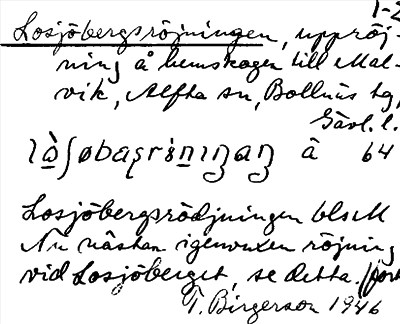 1-2
Losjöbergsröjningen, uppröj-
ning å hemskogen till Mal-
vik, Alfta sn, Bollnäs tg,
Gävl. l.
å 64
Losjöbergsrödjningen blsM
Nu nästan igenvuxen röjning
vid Losjöberget, se detta. (fort
T. Birgerson 1946